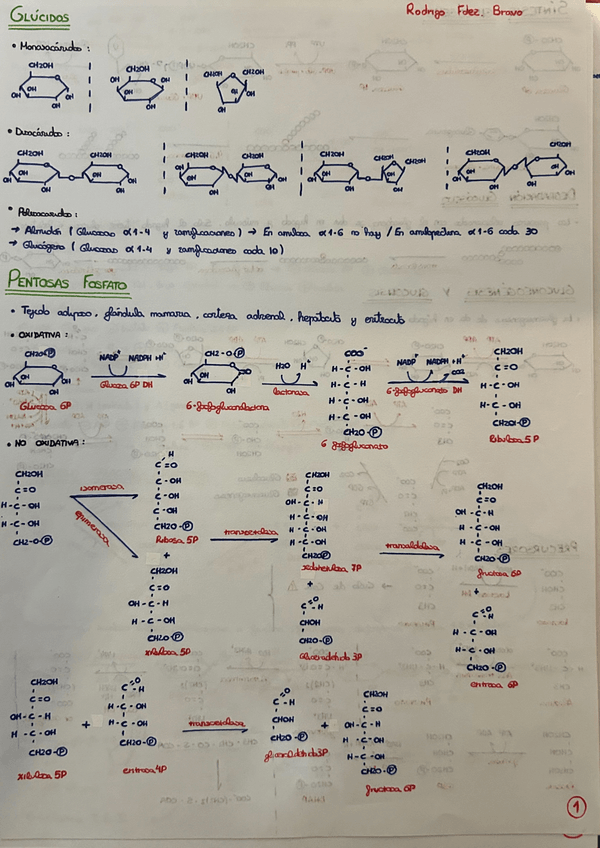 GLÚCIDOS
Rodrigo Fdez. Bravo
• Monosacáridos :
CH2OH CH2OH CH2OH CH2OH
• Disacáridos :
CH2OH CH2OH CH2OH CH2OH CH2OH CH2OH CH2OH CH2OH
• Polisacáridos :
→ Almidón ( Glucosas α1-4 y ramificaciones ) → En amilosa α1-6 no hay / En amilopectina α1-6 cada 30
→ Glucógeno ( Glucosas α1-4 y ramificaciones cada 10 )
PENTOSAS FOSFATO
• Tejido adiposo, glándula mamaria, corteza adrenal, hepatocito y eritrocito
• OXIDATIVA :
CH2O-P NADP+ NADPH+H+ CH2-O-P H2O H+ COO- NADP+ NADPH+H+ CO2 CH2OH
Glucosa 6P DH lactonasa 6-fosfogluconato DH
Glucosa 6P 6-fosfogluconolactona 6 fosfogluconato Ribulosa 5P
• NO OXIDATIVA :
CH2OH
C=O
H-C-OH
H-C-OH
CH2-O-P
isomerasa
epimerasa
H
C=O
C-OH
C-OH
C-OH
CH2O-P
Ribosa 5P
+
CH2OH
C=O
OH-C-H
H-C-OH
CH2O-P
xilulosa 5P
transcetolasa
CH2OH
C=O
OH-C-H
H-C-OH
H-C-OH
H-C-OH
CH2O-P
7P
+
C-H
CHOH
CH2O-P
3P
transaldolasa
CH2OH
C=O
OH-C-H
H-C-OH
H-C-OH
CH2O-P
fructosa 6P
+
C-H
H-C-OH
H-C-OH
CH2O-P
eritrosa
CH2OH
C=O
OH-C-H
H-C-OH
CH2O-P
xilulosa 5P
+
C-H
H-C-OH
H-C-OH
CH2O-P
eritrosa 4P
transcetolasa
C-H
CHOH
CH2O-P
3P
+
CH2OH
C=O
OH-C-H
H-C-OH
H-C-OH
CH2O-P
fructosa 6P
1